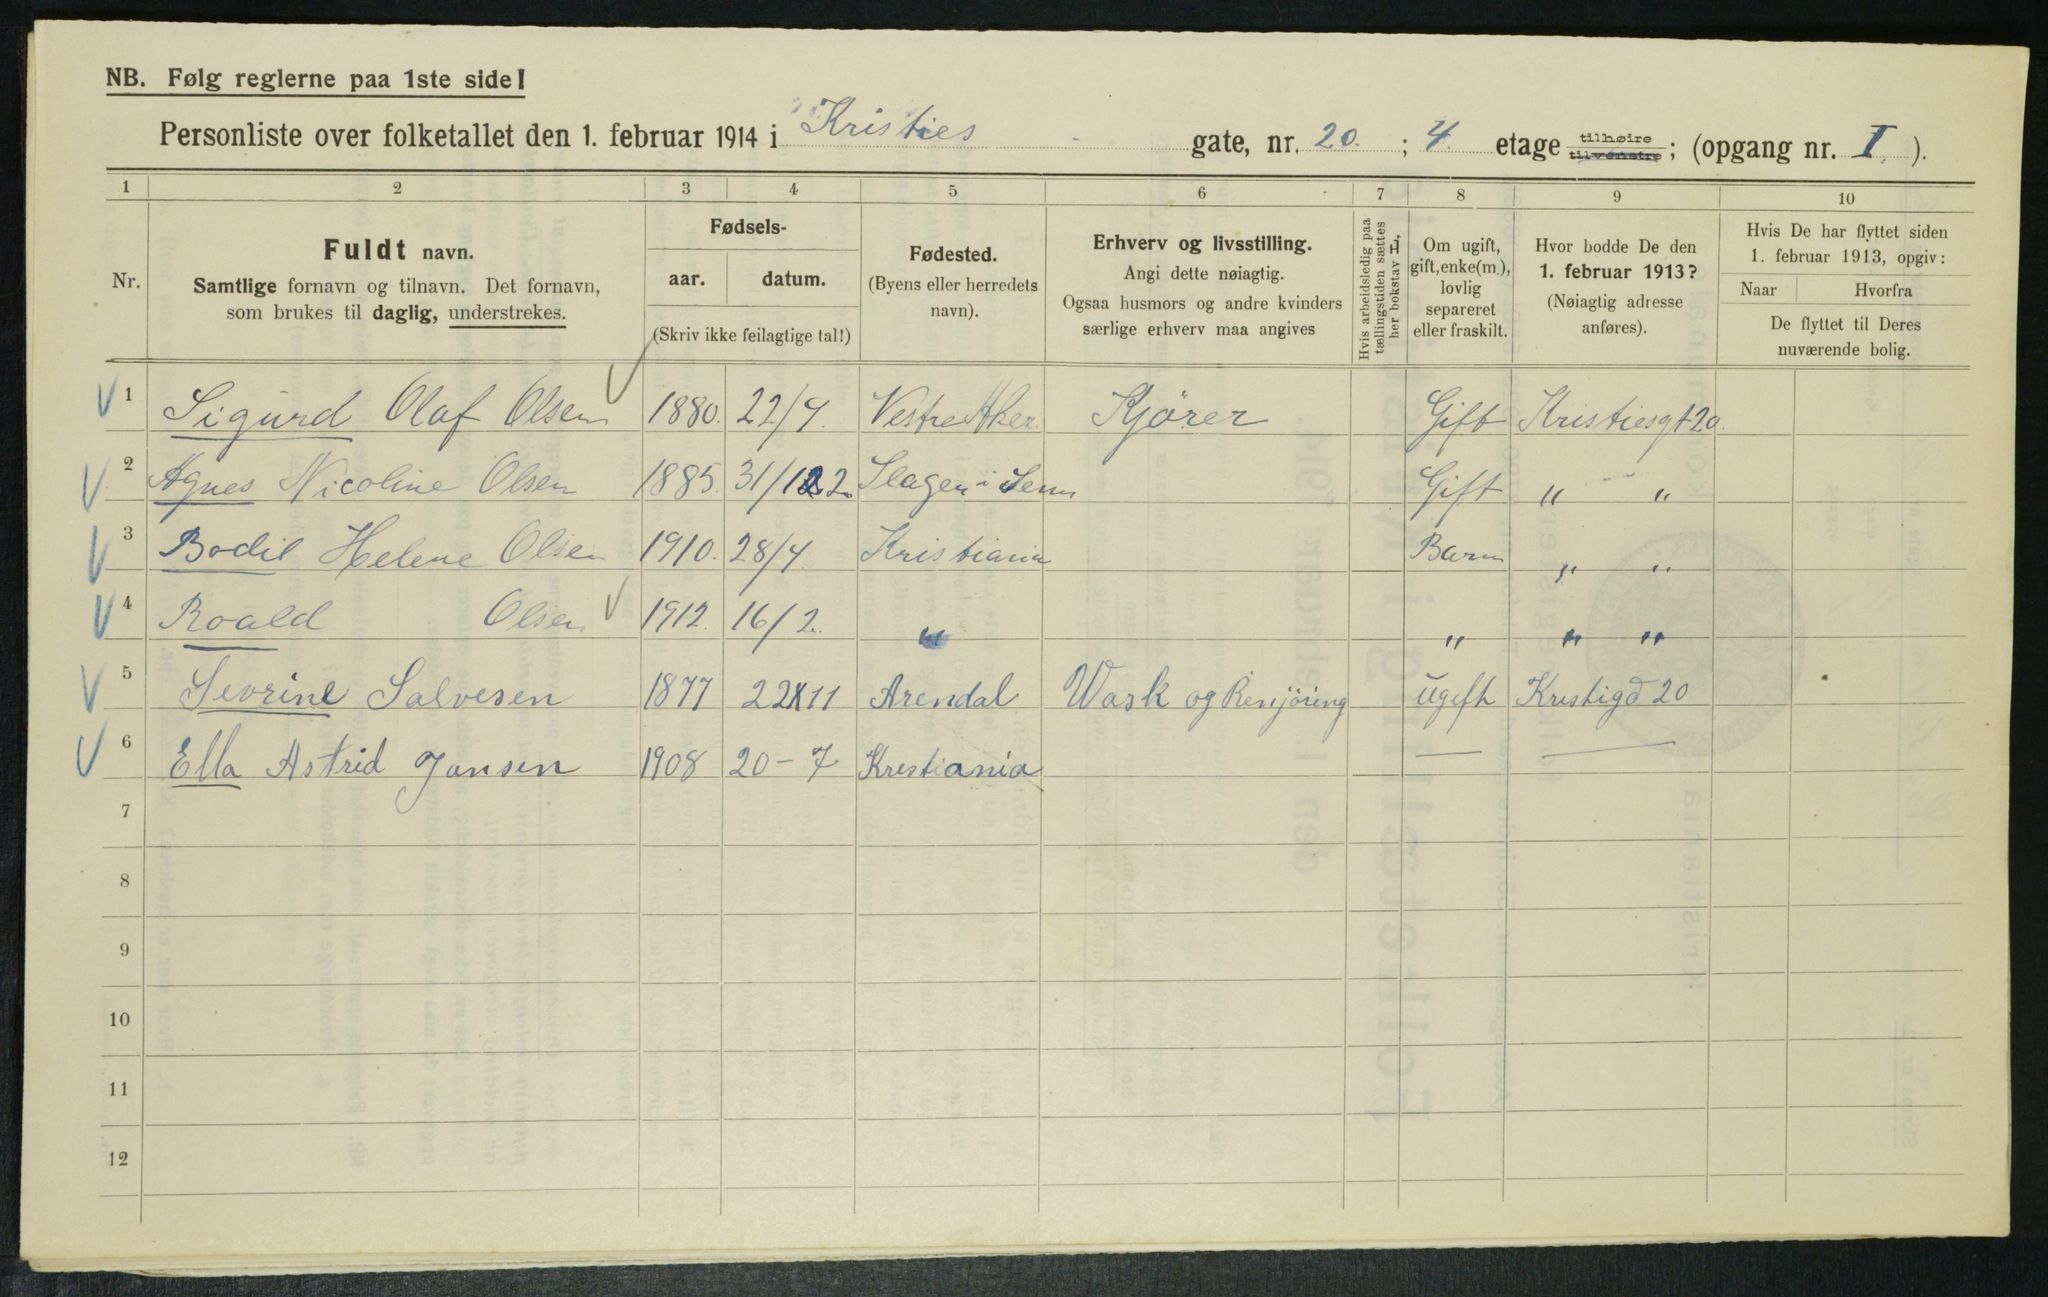 NB. Følg reglerne paa 1ste side!
Personliste over folketallet den 1. februar 1914 i Kristies gate, nr. 20. ; 4. etage tilhøire tilvenstre ; (opgang nr. I. ).
1 2 3 4 5 6 7 8 9 10
Nr.
Fuldt navn.
Samtlige fornavn og tilnavn. Det fornavn,
som brukes til daglig, understrekes.
Fødsels-
aar. datum.
(Skriv ikke feilagtige tal!)
Fødested.
(Byens eller herredets
navn).
Erhverv og livsstilling.
Angi dette nøiagtig.
Ogsaa husmors og andre kvinders
særlige erhverv maa angives
Hvis arbeidsledig paa
tællingstiden sættes
her bokstav L.
Om ugift,
gift, enke(m.),
lovlig
separeret
eller fraskilt.
Hvor bodde De den
1. februar 1913?
(Nøiagtig adresse
anføres).
Hvis De har flyttet siden
1. februar 1913, opgiv:
Naar Hvorfra
De flyttet til Deres
nuværende bolig.
1 Sigurd Olaf Olsen 1880. 22/9. Vestre Aker. Kjörer Gift Kristiesgt 20.
2 Agnes Nicoline Olsen 1885. 31/12 2. Slagen i Sem Gift " "
3 Bodil Helene Olsen 1910. 28/4 Kristiania Barn " "
4 Roald Olsen 1912. 16/2. " " " "
5 Sevrine Salvesen 1877 22/11 Arendal Wask og Renjöring ugift Krestigd 20
6 Ella Astrid Jansen 1908 20 – 7 Krestiania — —
7
8
9
10
11
12